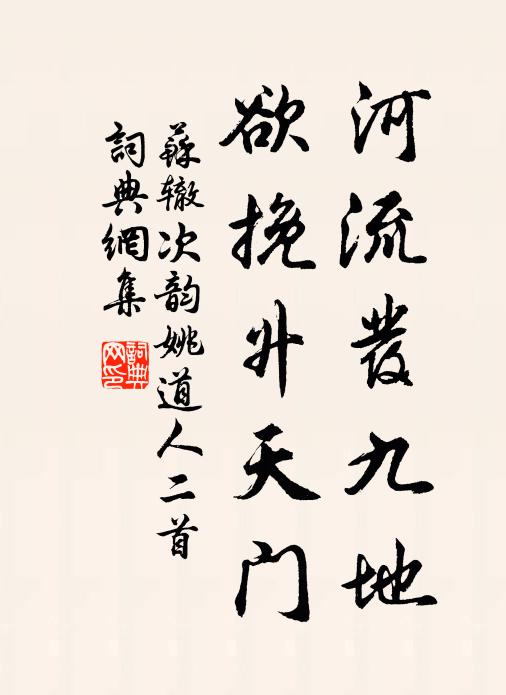 河流發九地
欲挽升天門
蘇辙次韵姚道人二首
詞典網集
詞典网印